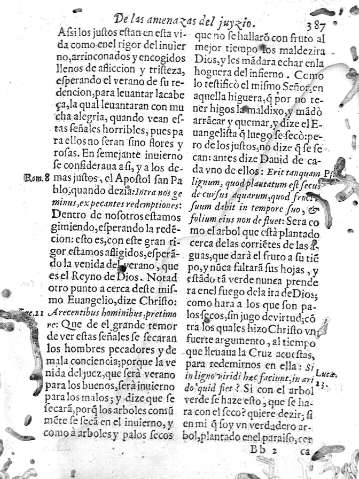 De las amenazas del juyzio.
387
Assi los justos estan en esta vi-
da como en el rigor del inuier
no, arrinconados y encogidos
llenos de afliccion y tristeza,
esperando el verano de su re-
dencion, para leuantar la cabe
ça, la qual leuantaran con mu
cha alegria, quando vean es-
tas señales horribles, pues pa
ra ellos no seran sino flores y
rosas. En semejante inuierno
se consideraua assi, y a los de-
Rom. 8
mas justos, el Apostol san Pa
blo, quando dezia: Intra nos ge
minus, expectantes redemptiones:
Dentro de nosotros estamos
gimiendo, esperando la redẽ-
cion: esto es, con este gran ri-
gor estamos afligidos, esperã-
do la venida del verano, que
es el Reyno de Dios. Notad
otro punto a cerca deste mis-
mo Euangelio, dize Christo:
Luc. 21
Arecentibus hominibus, præ timo
re: Que de el grande temor
de ver estas señales se secaran
los hombres pecadores y de
mala conciencia; porque la ve
nida del juez, que será verano
para los buenos, será inuierno
para los malos; y dize que se
secarã, porq̃ los arboles consu
mẽre se secã en el inuierno, y
como à arboles y palos secos
que no se hallarõ con fruto al
mejor tiempo los maldezira
Dios, y les mãdara echar en la
hoguera del infierno. Como
lo testificò el mismo Señor, en
aquella higuera, q̃ por no te-
ner higos la maldixo, y mãdò
arrãcar y quemar, y dize el E-
uangelista q̃ luego se secò: pe-
ro de los justos, no dize q̃ se se
can: antes dize Dauid de ca-
da vno dellos: Erit tanquam
lignum, quod plantatum est secus
de cursus aquarum, quod fructũ
suum dabit in tempore suo, &
folium eius non defluet: Sera co
mo el arbol que està plantado
cerca de las corriẽtes de las a-
guas, que darà el fruto a su tiẽ
po, y nũca faltarà sus hojas, y
estãdo tã verde nunca prende
rà en el fuego de la ira de Dios,
como hara a los que son pa-
los secos, sin jugo de virtud, cõ
tra los quales hizo Christo vn
fuerte argumento, al tiempo
que lleuaua la Cruz acuestas,
para redemirnos en ella: Si
Lucæ. 23.
in ligno viridi hæc faciunt, in ari
do quid fiet? Si con el arbol
verde se haze esto, que se ha-
ra con el seco? quiere dezir, si
en mi q̃ soy vn verdadero ar-
bol, plantado en el paraiso, cer
Bb 2
ca